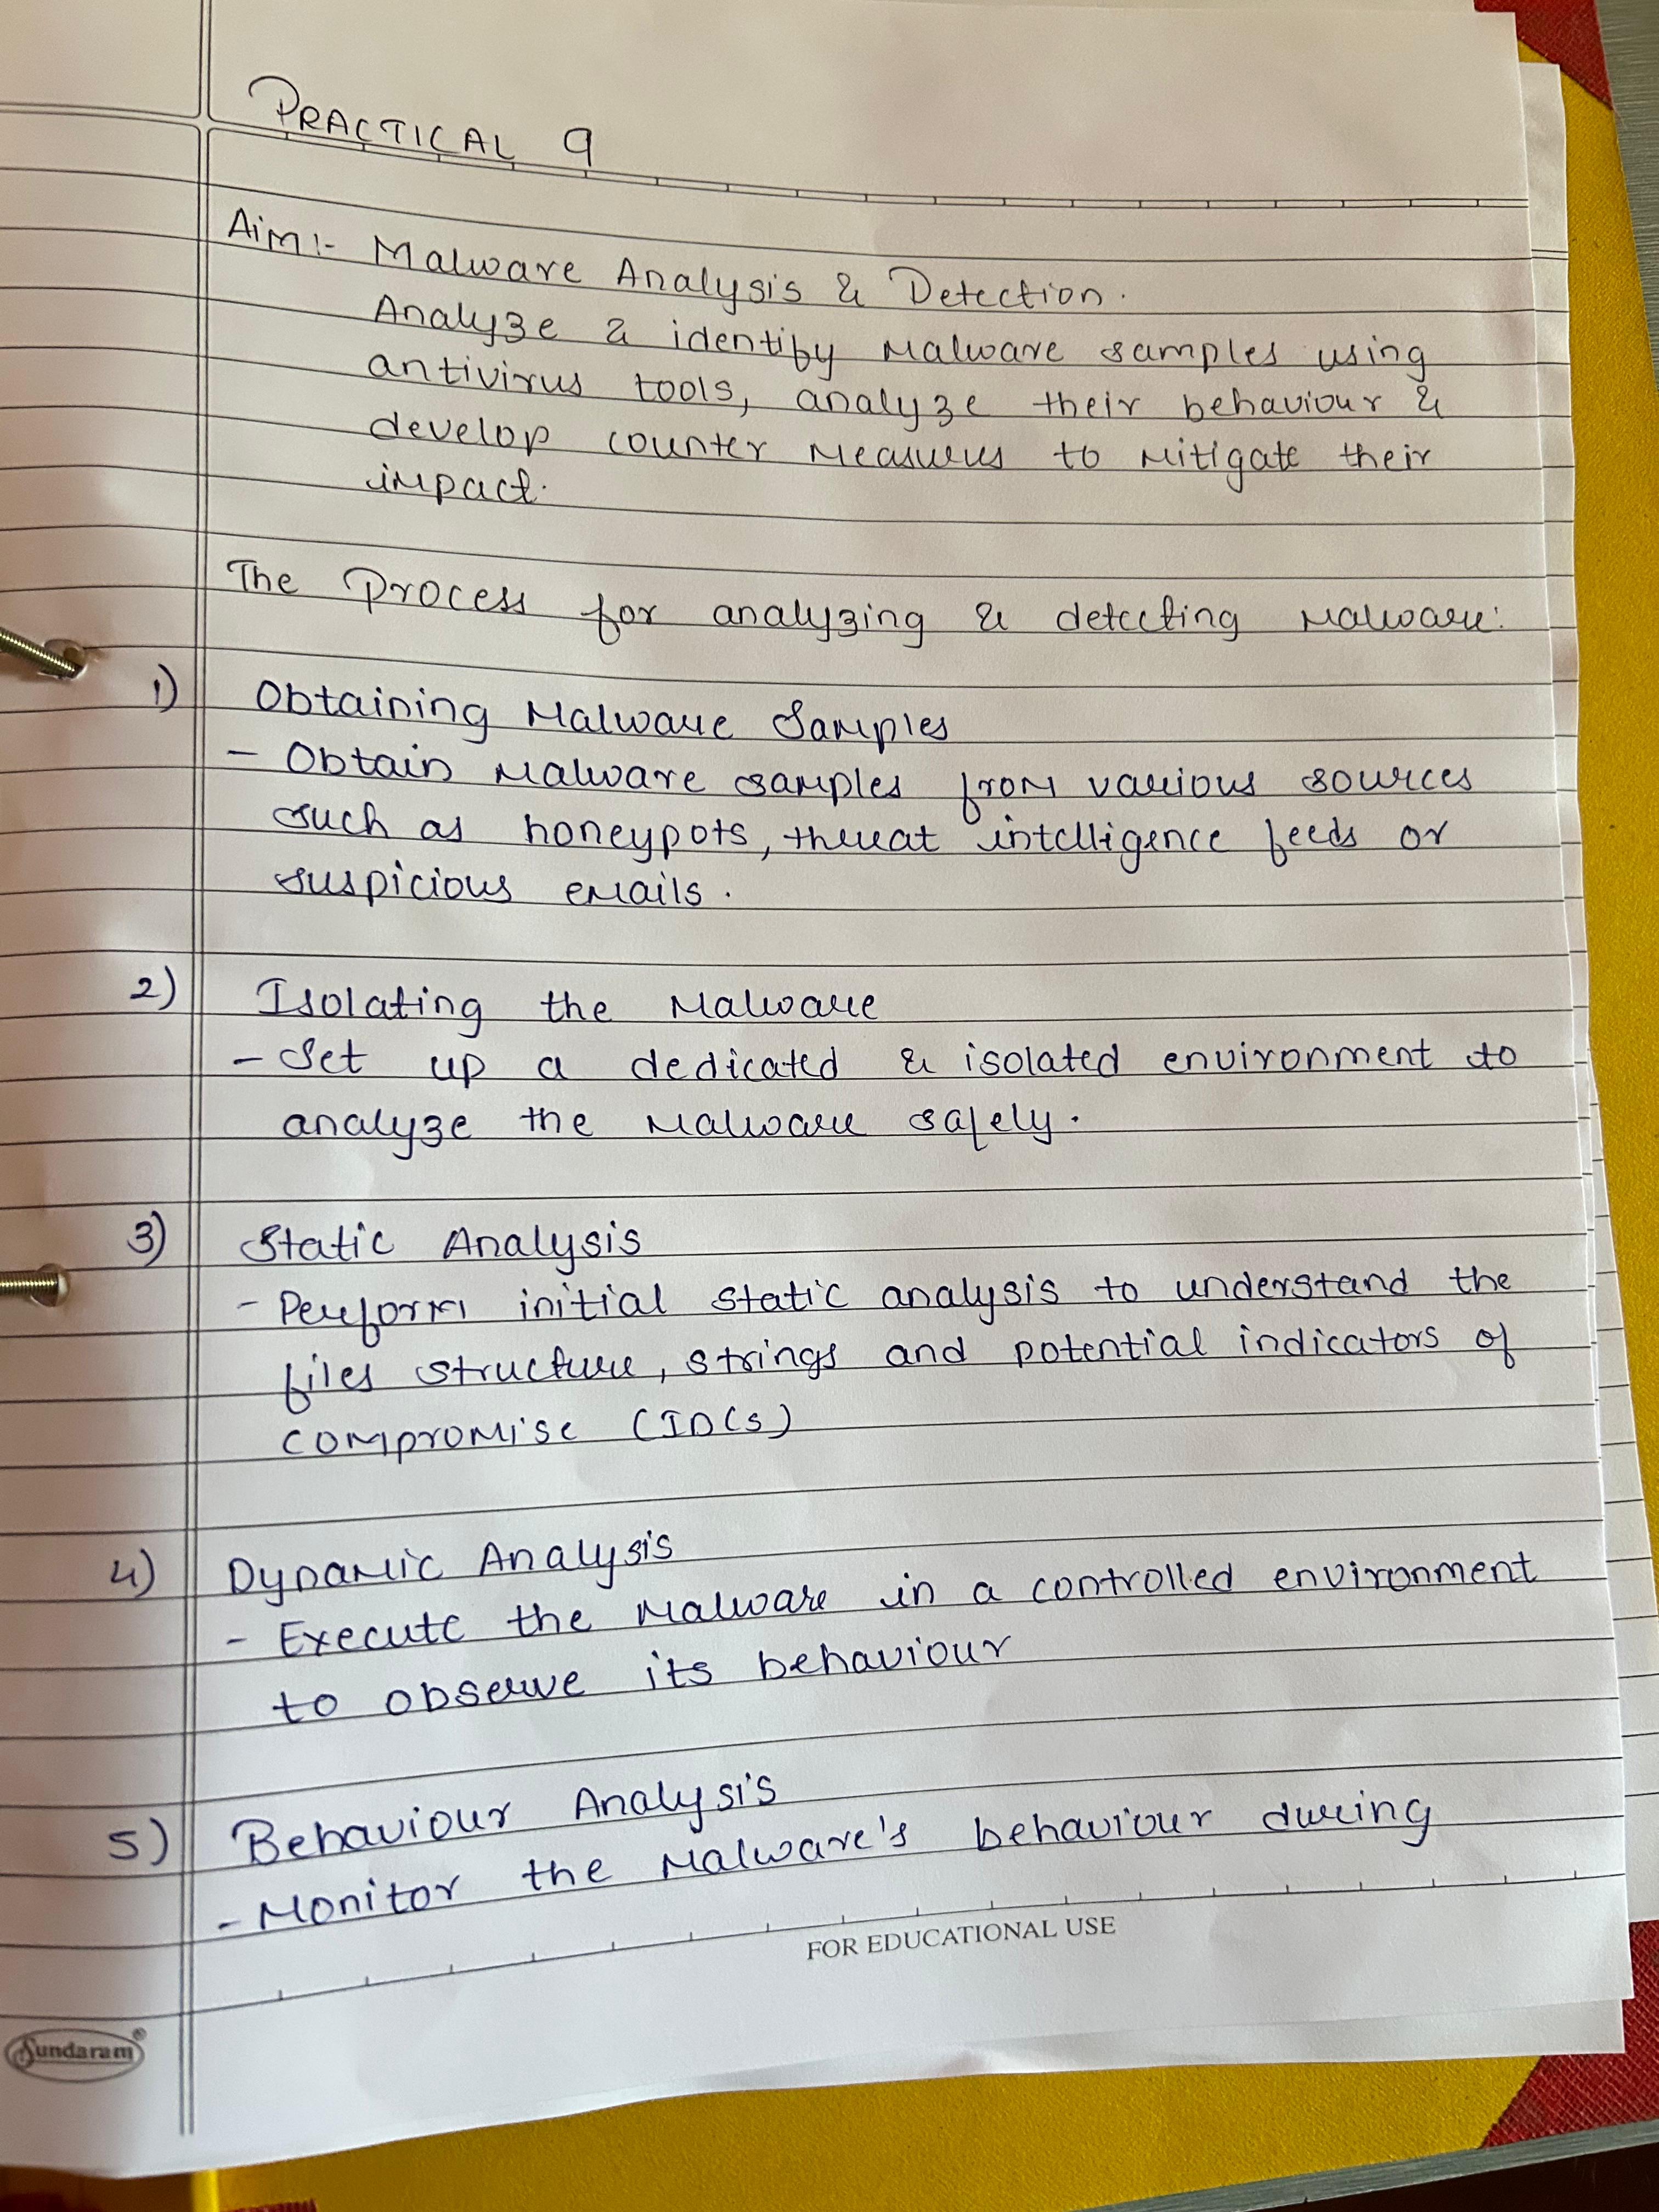 PRACTICAL 9
Aim:- Malware Analysis & Detection.
Analyze & identify malware samples using
antivirus tools, analyze their behaviour &
develop counter measures to mitigate their
impact.
The Process for analyzing & detecting malware:
1) Obtaining Malware Samples
- Obtain malware samples from various sources
such as honeypots, threat intelligence feeds or
suspicious emails.
2) Isolating the Malware
- Set up a dedicated & isolated environment to
analyze the malware safely.
3) Static Analysis
- Perform initial static analysis to understand the
files structure, strings and potential indicators of
compromise (IOCs)
4) Dynamic Analysis
- Execute the malware in a controlled environment
to observe its behaviour
5) Behaviour Analysis
- Monitor the malware's behaviour during
FOR EDUCATIONAL USE
Sundaram®